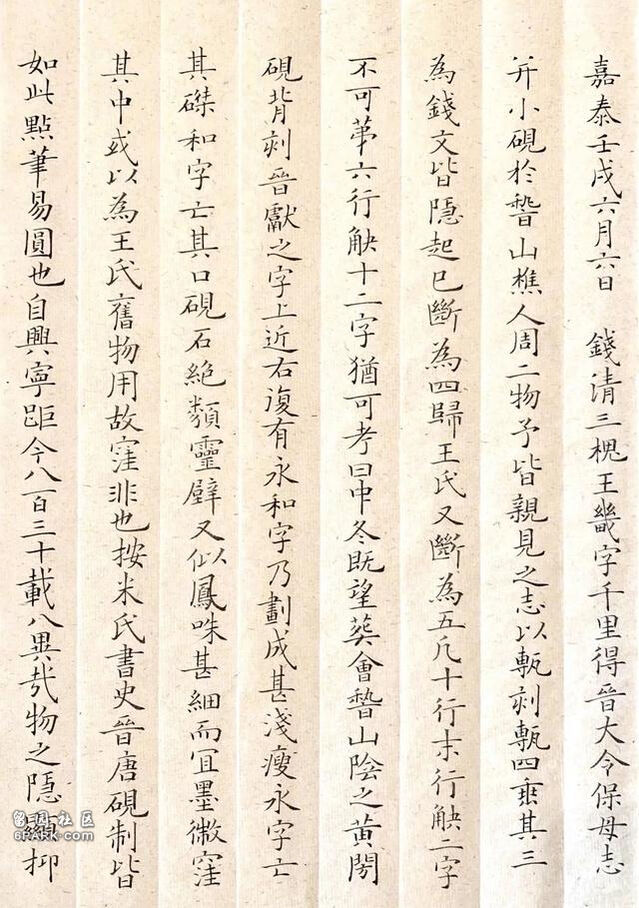 嘉泰壬戌六月六日　錢清三槐王畿字千里得晉大令保母志
并小硯於稽山樵人周二物予皆親見之志以甎刻甎四垂其三
為錢文皆隱起已斷為四歸王氏又斷為五凡十行末行缺二字
不可苐六行缺十二字猶可考曰中冬既望葬會稽山陰之黃閍
硯背刻晉獻之字上近右復有永和字乃劃成甚淺瘦永字亡
其磔和字亡其口硯石絶類靈壁又似鳳咮甚細而宜墨微窪
其中或以為王氏舊物用故窪非也按米氏書史晉唐硯制皆
如此點筆易圓也自興寧距今八百三十載八異哉物之隱顯抑
留园社区
6PARK.com